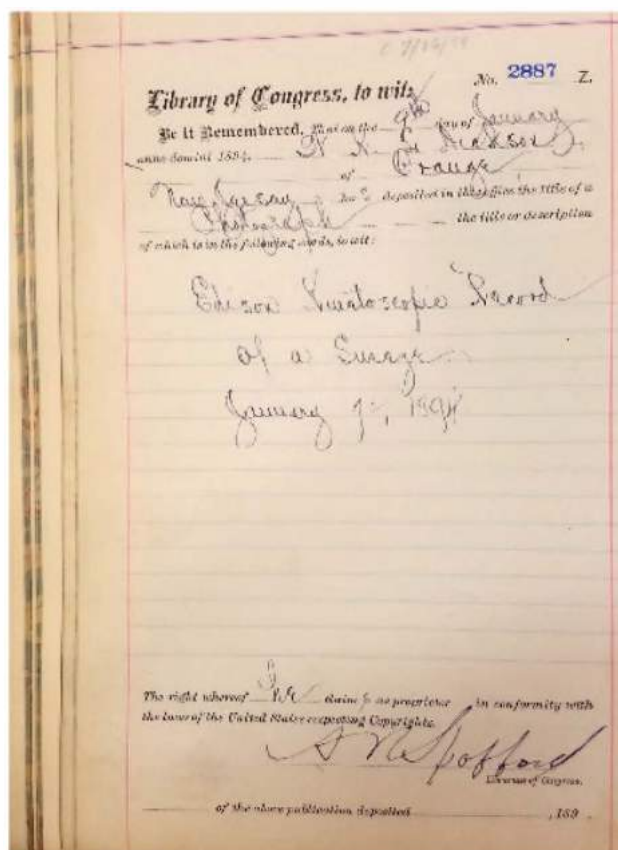 No. 2887 Z.
Library of Congress, to wit:
Be It Remembered, That on the 9th day of January
anno domini 1894, W. K. L. Dickson,
of Orange,
New Jersey ha s deposited in this office the title of a
Photograph the title or description
of which is in the following words, to wit:
Edison Kinetoscopic Record
of a Sneeze
January 7, 1894
The right whereof he claims as proprietor in conformity with
the laws of the United States respecting Copyrights.
A R Spofford
Librarian of Congress.
of the above publication deposited , 189 .